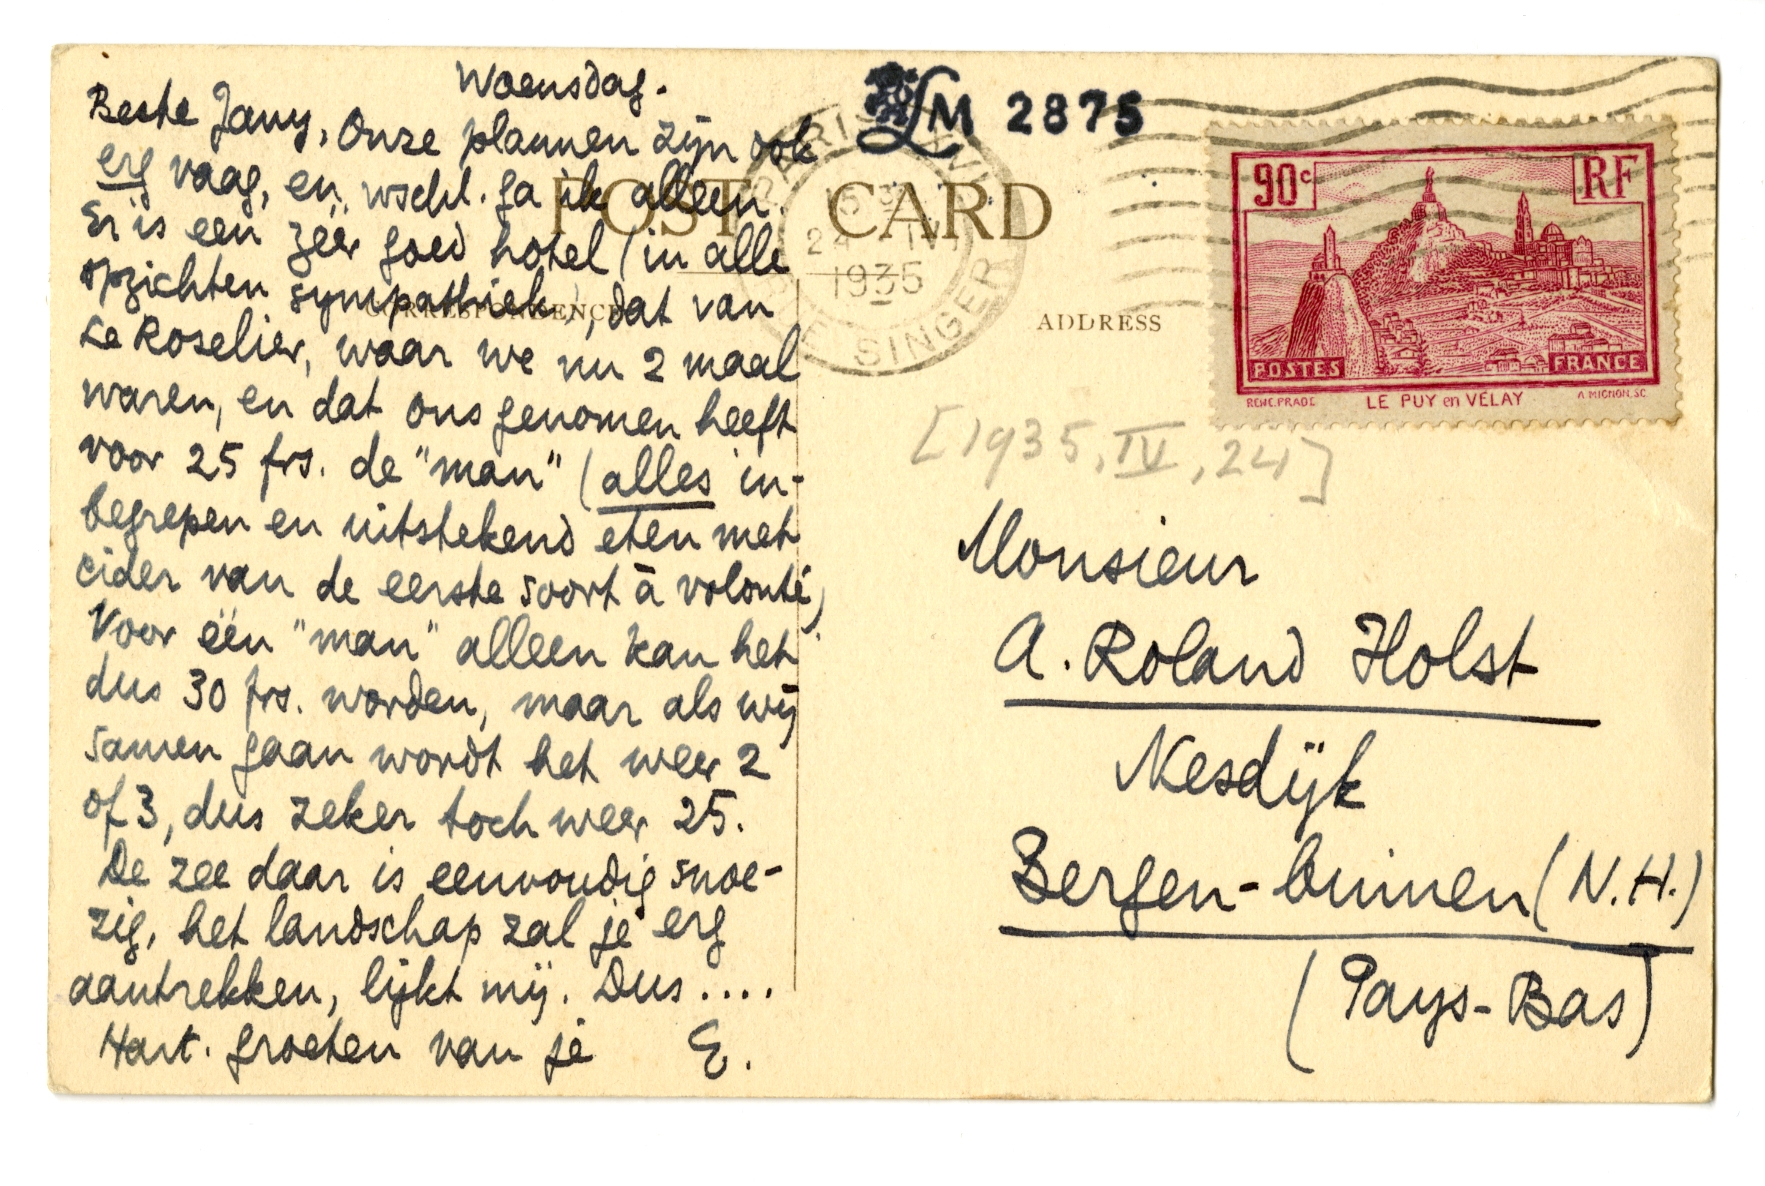 Woensdag.
Beste Jany, Onze plannen zijn ook
erg vaag, en wschl. ga ik alleen.
Er is een zéér goed hotel (in alle
opzichten sympathiek), dat van
Le Roselier, waar we nu 2 maal
waren, en dat ons genomen heeft
voor 25 frs. de "man" (alles in-
begrepen en uitstekend eten met
cider van de eerste soort à volonté)
Voor één "man" alleen kan het
dus 30 frs. worden, maar als wij
samen gaan wordt het weer 2
of 3, dus zeker toch weer 25.
De zee daar is eenvoudig snoe-
zig, het landschap zal je erg
aantrekken, lijkt mij. Dus....
Hart. groeten van je E.
POST CARD
CORRESPONDENCE
ADDRESS
LM 2875
PARIS XVI
24 - IV
1935
SINGER
90c
RF
POSTES
FRANCE
RENE.PRADE LE PUY en VELAY A MIGNON.SC
[1935, IV, 24]
Monsieur
A. Roland Holst
Nesdijk
Bergen-binnen (N.H.)
(Pays-Bas)